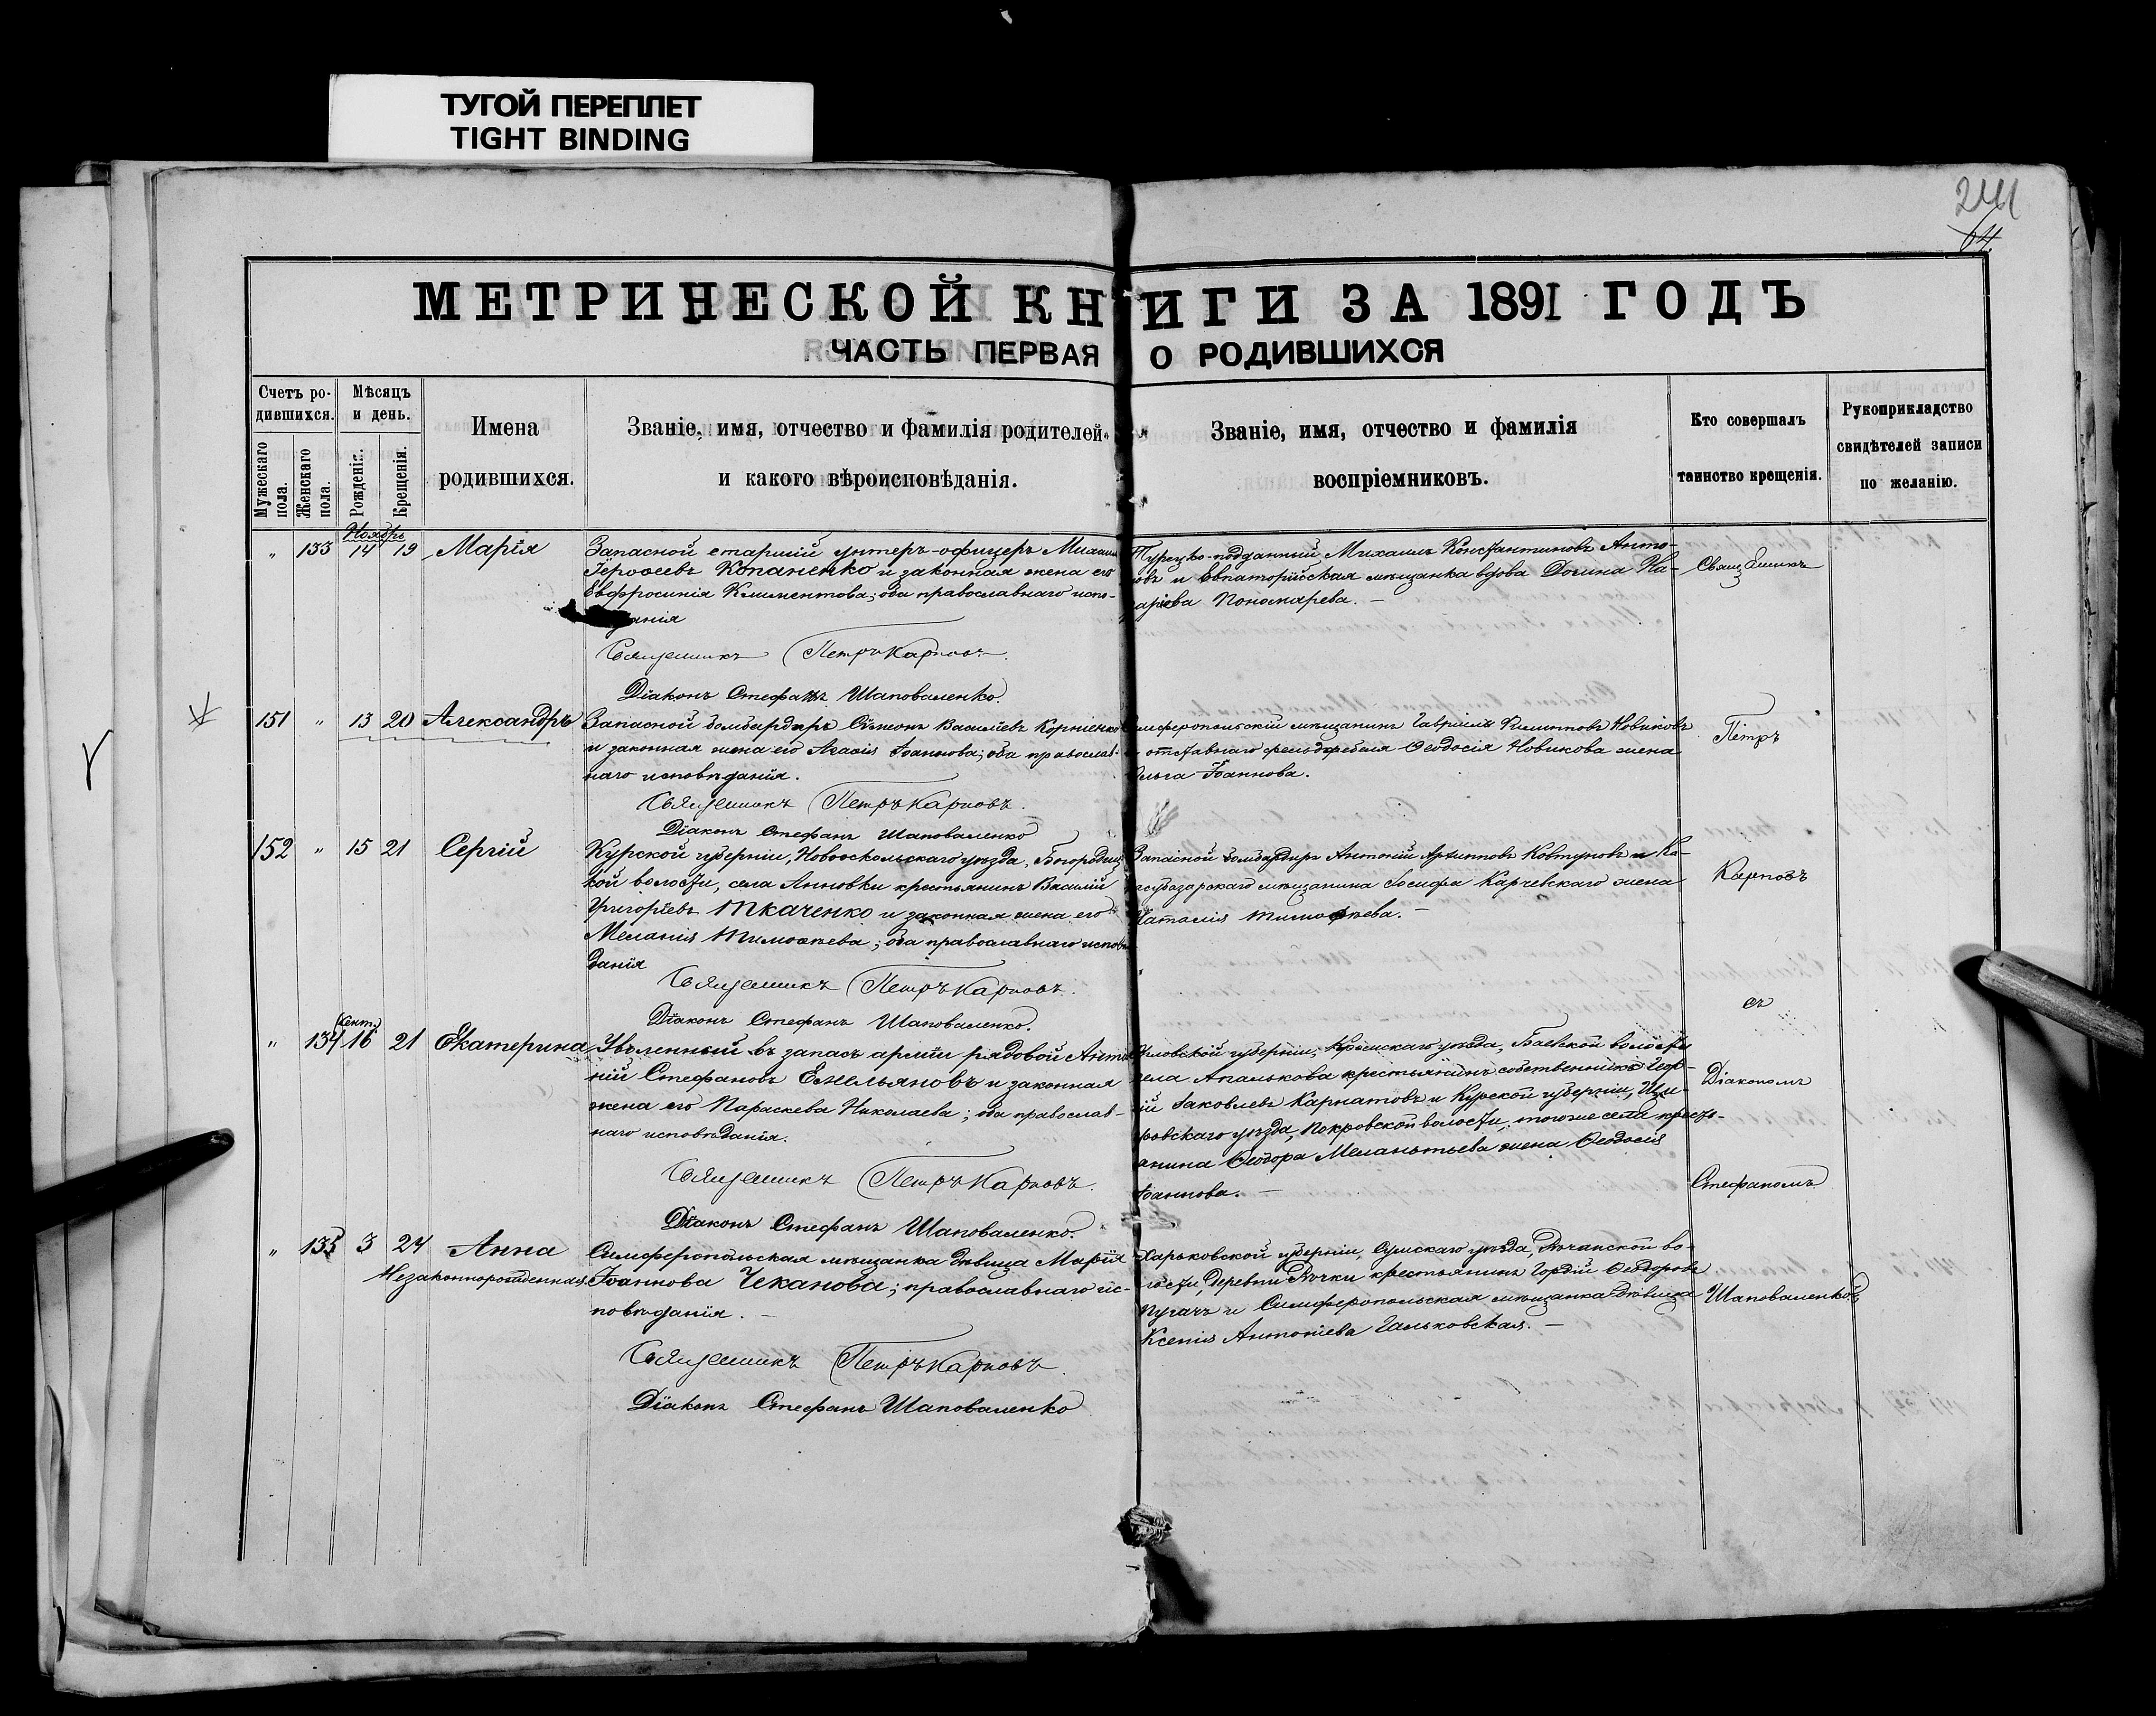 ТУГОЙ ПЕРЕПЛЕТ
TIGHT BINDING
241
64
МЕТРИЧЕСКОЙ КНИГИ ЗА 1891 ГОДЪ
ЧАСТЬ ПЕРВАЯ О РОДИВШИХСЯ
Счетъ ро-
дившихся.
Мужескаго пола.
Женскаго пола.
Мѣсяцъ
и день.
Рожденія.
Крещенія.
Имена
родившихся.
Званіе, имя, отчество и фамилія родителей
и какого вѣроисповѣданія.
Званіе, имя, отчество и фамилія
воспріемниковъ.
Кто совершалъ
таинство крещенія.
Рукоприкладство
свидѣтелей записи
по желанію.
Ноябрь
" 133 14 19 Марія
Запасной старшій унтеръ-офицеръ Михаилъ
Іероѳеевъ Копаненко и законная жена его
Евфросинія Климентова; оба православнаго испо-
данія
Священникъ Петръ Карповъ.
Діаконъ Стефанъ Шаповаленко.
Турецко-подданный Михаилъ Константиновъ Анто-
овъ и Евпаторійская мѣщанка вдова Домна На-
Пономарева. —
Священникъ
151 " 13 20 Александръ
Запасной бомбардиръ Сѵмеонъ Василіевъ Корніенко
и законная жена его Агаѳія Іоаннова; оба православ-
наго исповѣданія.
Священникъ Петръ Карповъ.
Діаконъ Стефанъ Шаповаленко
имферопольскій мѣщанинъ Гавріилъ Филипповъ Новиковъ
отставнаго фельдфебеля Ѳеодосія Новикова жена
Ольга Іоаннова.
Петръ
152 " 15 21 Сергій
Курской губерніи, Новооскольскаго уѣзда, Богородиц-
кой волости, села Анновки крестьянинъ Василій
Григоріевъ Ткаченко и законная жена его
Меланія Тимоѳеева; оба православнаго исповѣ
данія
Священникъ Петръ Карповъ.
Діаконъ Стефанъ Шаповаленко.
Запасной бомбардиръ Антоній Архиповъ Ковтуновъ и Ка-
расубазарскаго мѣщанина Іосифа Карчевскаго жена
Наталія Тимоѳеева. —
Карповъ
съ
Сент.
" 134 16 21 Екатерина
Уволенный въ запасъ арміи рядовой Анто
ній Стефановъ Емельяновъ и законная
жена его Параскева Николаева; оба православ-
наго исповѣданія.
Священникъ Петръ Карповъ.
Діаконъ Стефанъ Шаповаленко.
Орловской губерніи, уѣзда, волости
села Апалькова крестьянинъ собственникъ Геор-
гій Іаковлевъ Карпатовъ и Курской губерніи, Щи-
ровскаго уѣзда, Покровской волости, того же села крестъ-
янина Ѳеодора Мелантьева жена Ѳеодосія
Іоаннова. —
Діакономъ
Стефаномъ
" 135 3 24 Анна
Незаконнорожденная
Симферопольская мѣщанка дѣвица Марія
Іоаннова Чеканова; православнаго ис-
повѣданія. —
Священникъ Петръ Карповъ.
Діаконъ Стефанъ Шаповаленко
Харьковской губерніи, Сумскаго уѣзда, во-
лости, деревни крестьянинъ Гордій Ѳеодоровъ
Пугачъ и Симферопольская мѣщанка дѣвица
Ксенія Антоніева Гальковская. —
Шаповаленко